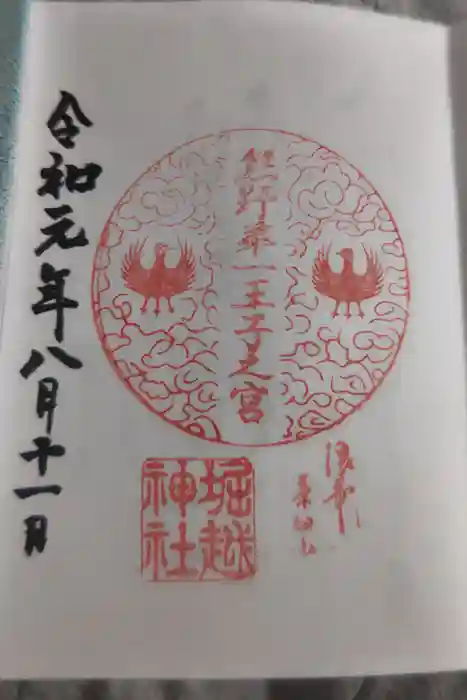 熊野第一王子之宮
堀越
神社
令和元年八月十一日